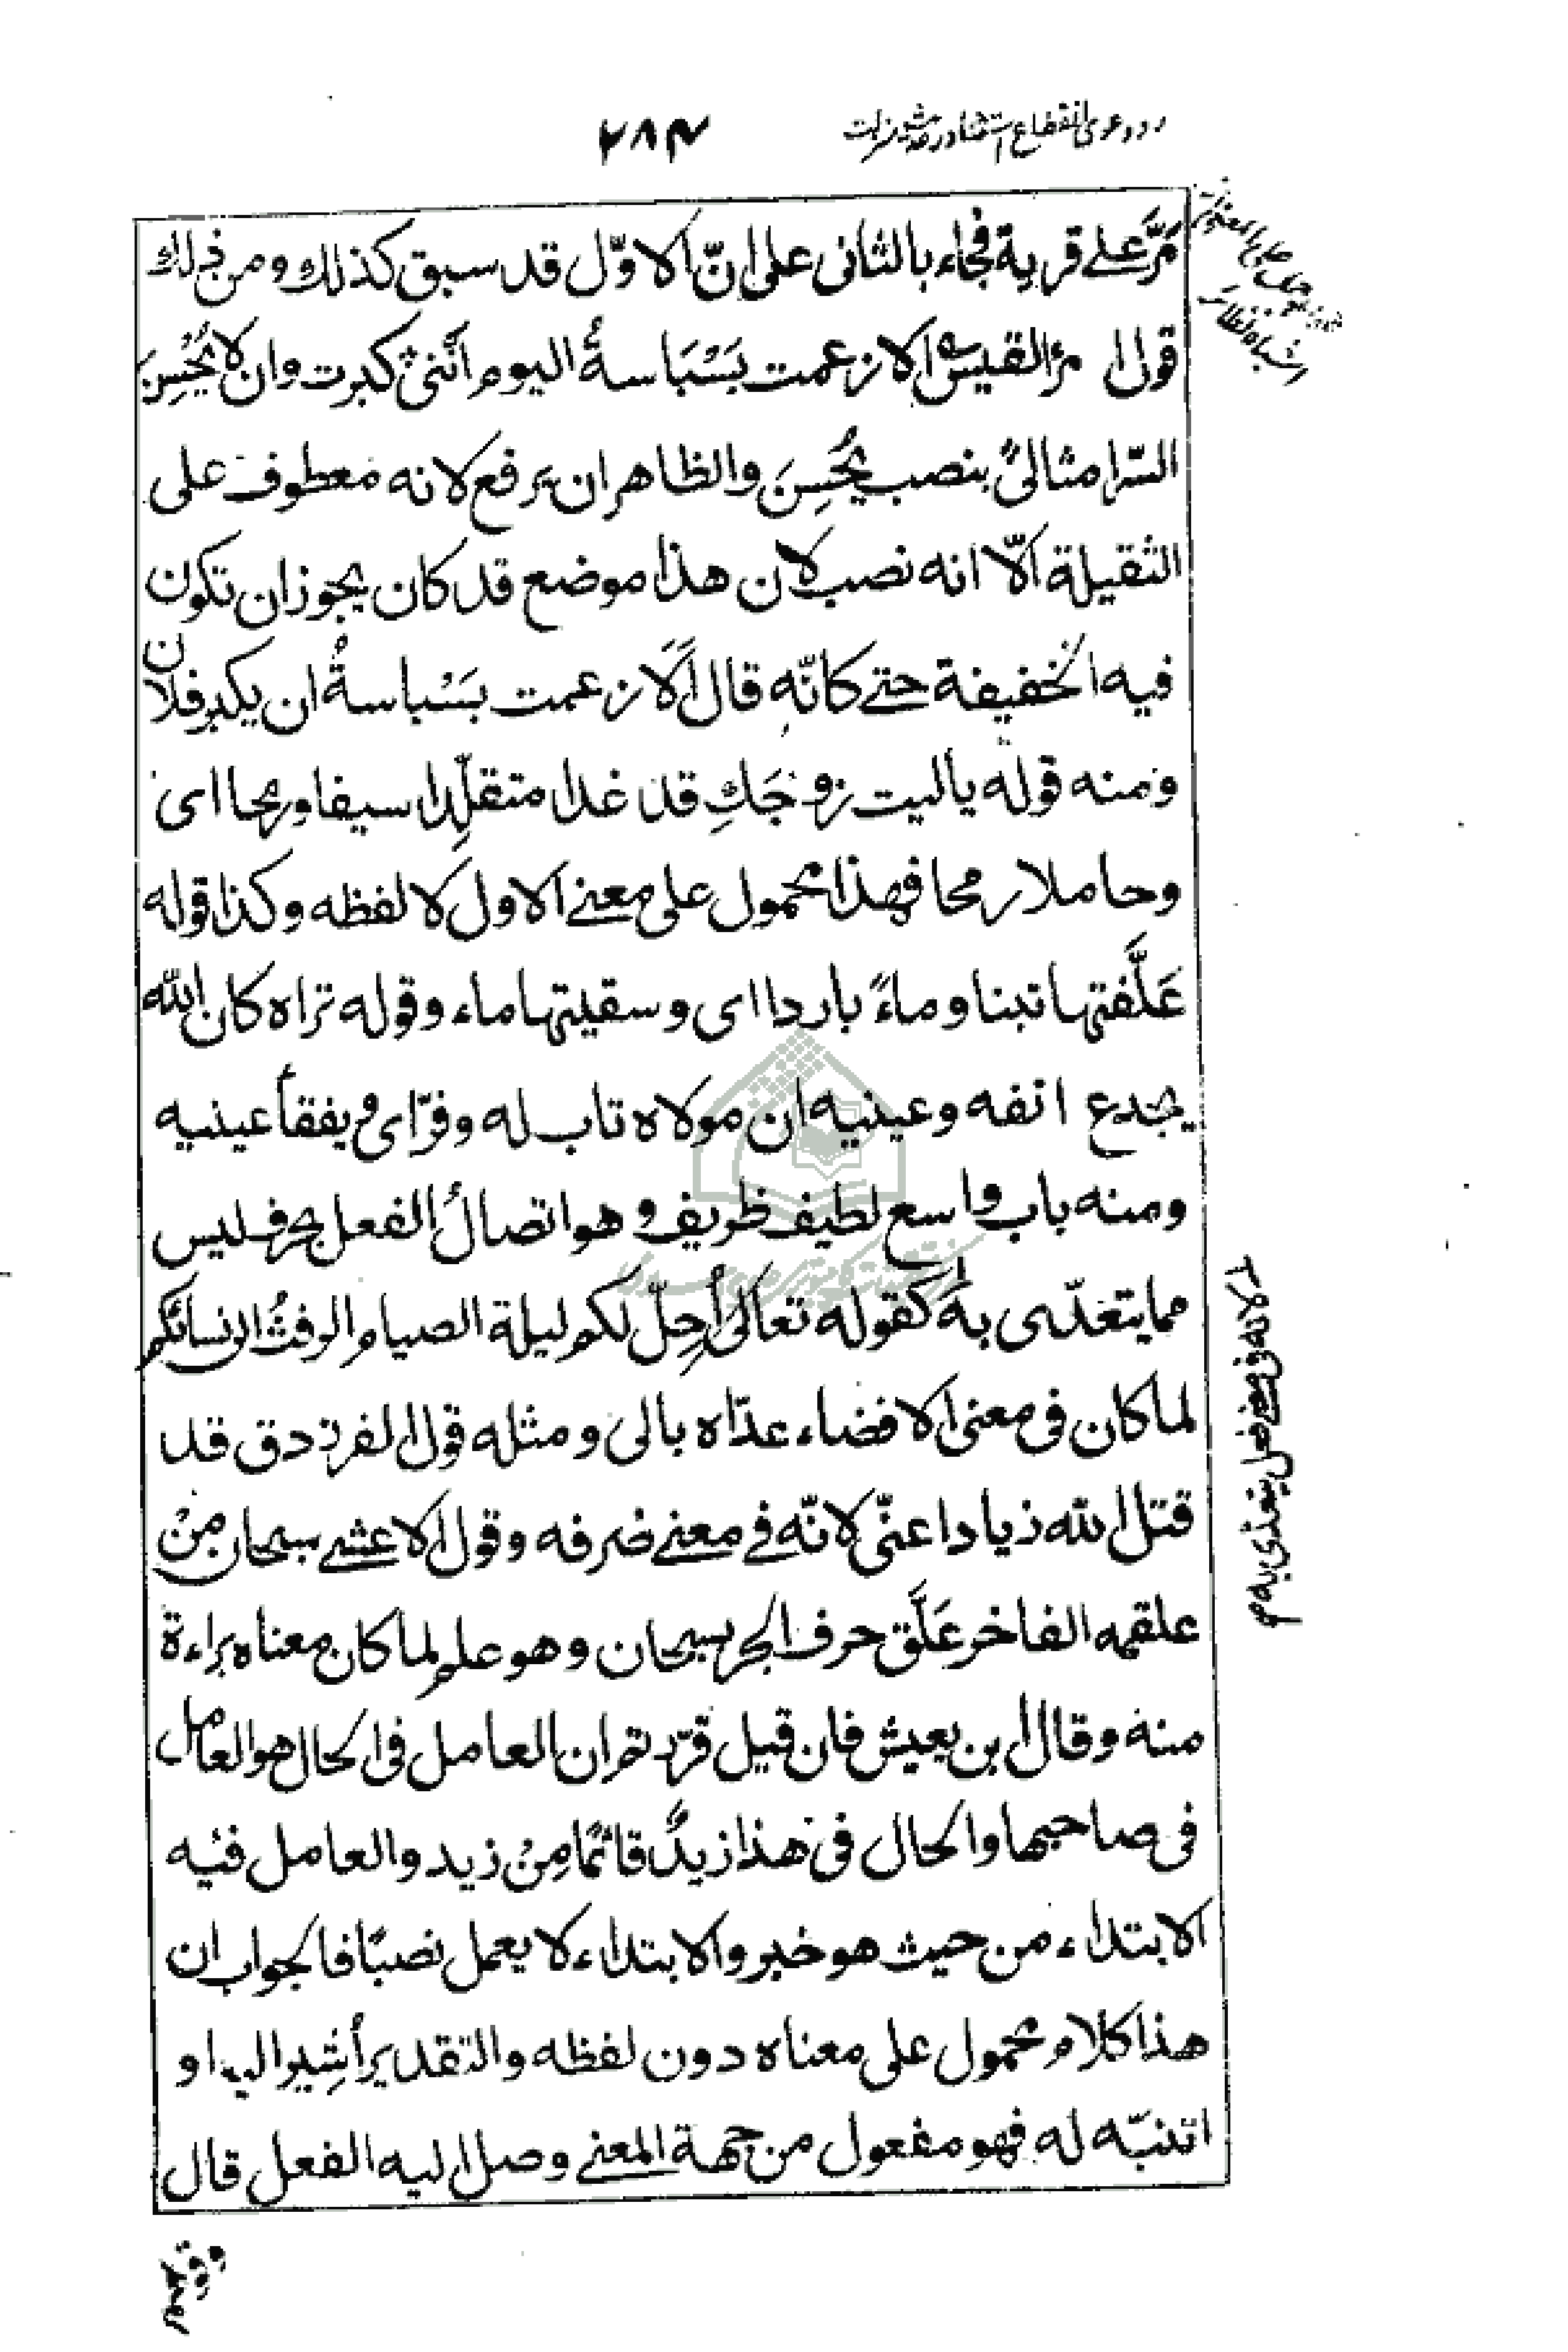 رد دعوی انقطاع استثنا در حدیث منزلت
٢٨٣
مَرَّ علی قریة فجاء بالثانی علی انّ الاوّل قد سبق کذلك ومن ذلك
قول امرئ القیس الا زعمت بَسْبَاسةُ الیوم أنّنی کبرت وان لا یُحْسِنَ
السّرا مثالیْ بنصب یُحْسِنَ والظاهر ان یرفع لانه معطوف علی
الثقیلة الّا انه نصب لان هذا موضع قد کان یجوز ان تکون
فیه الخفیفة حتی کانّه قال أَلَا زعمت بَسْباسةُ ان یکبر فلان
ومنه قوله یالیت زوجَكِ قد غدا متقلِّدا سیفا ورمحا ای
وحاملا رمحا فهذا محمول علی معنی الاول لا لفظه وکذا قوله
عَلَّفتها تبنا وماءً باردا ای وسقیتها ماء وقوله تراه کان الله
یجدع انفه وعینیه ان مولاه تاب له وفرّ ای ویفقأ عینیه
ومنه باب واسع لطیف ظریف وهو اتصالُ الفعل بحرف لیس
مما یتعدّی به کقوله تعالی أُحِلّ لکم لیلة الصیام الرفثُ الی نسائکم
لما کان فی معنی الافضاء عدّاه بالی ومثله قول الفرزدق قد
قتل الله زیادا عنّی لانّه فی معنی صرفه وقول الاعشی سبحان مِنْ
علقمه الفاخر عَلَّق حرف الجر بسبحان وهو علم لما کان معناه براءة
منه وقال ابن یعیش فان قیل قرّرتم ان العامل فی الحال هو العامل
فی صاحبها والحال فی هذا زیدٌ قائمًا مِنْ زید والعامل فیه
الابتداء من حیث هو خبر والابتداء لا یعمل نصبًا فالجواب ان
هذا کلام محمول علی معناه دون لفظه والتقدیر أُشِیر الیه او
انتبّه له فهو مفعول من جهة المعنی وصل الیه الفعل قال
لانه فی معنی فعل یتعدّی به